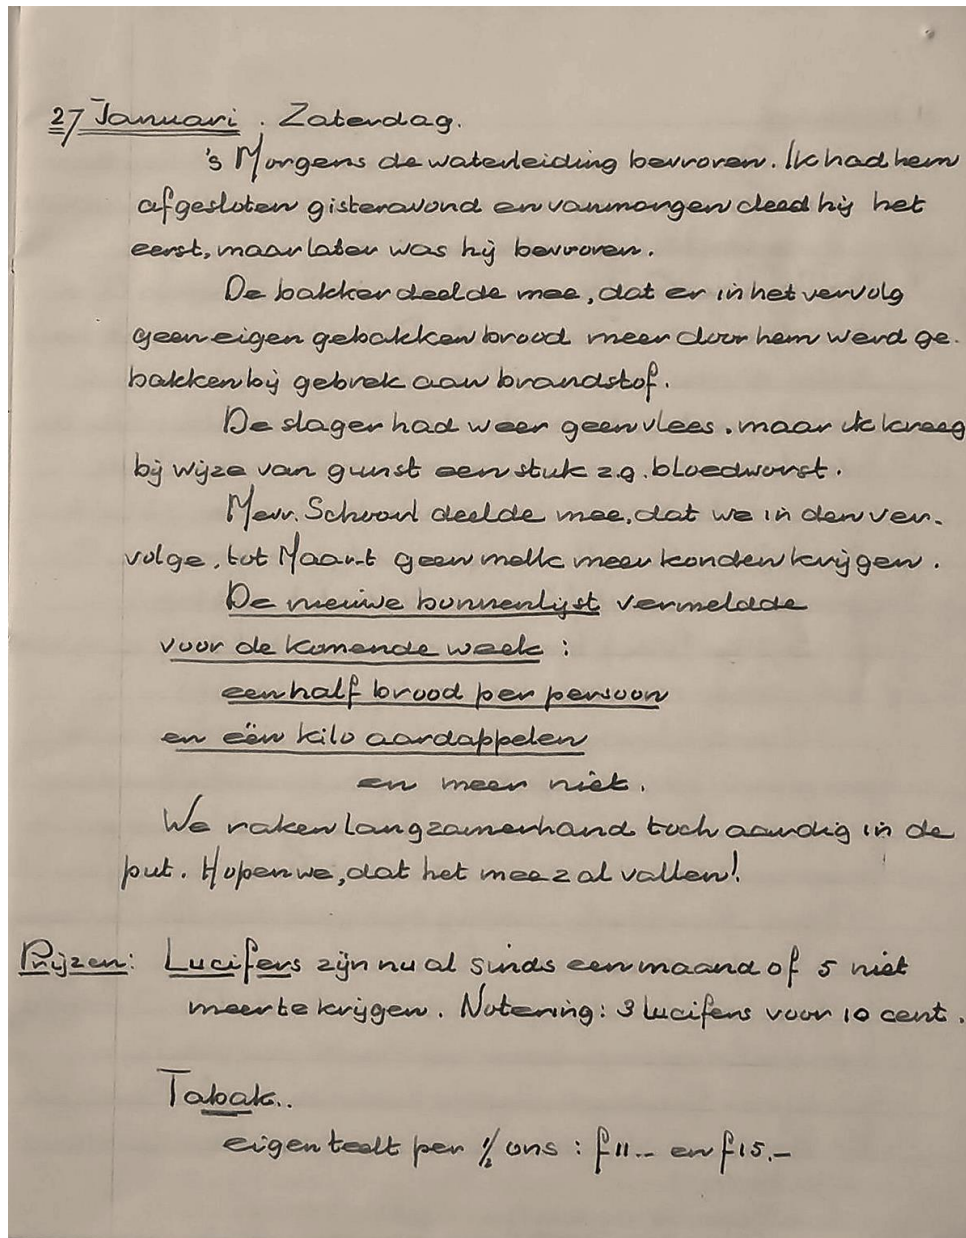 27 Januari. Zaterdag.
's Morgens de waterleiding bevroren. Ik had hem
afgesloten gisteravond en vanmorgen deed hij het
eerst, maar later was hij bevroren.
De bakker deelde mee, dat er in het vervolg
geen eigen gebakken brood meer door hem werd ge-
bakken bij gebrek aan brandstof.
De slager had weer geen vlees, maar ik kreeg
bij wijze van gunst een stuk z.g. bloedworst.
Mevr. Schoorl deelde mee, dat we in den ver-
volge, tot Maart geen melk meer konden krijgen.
De nieuwe bonnenlijst vermeldde
voor de komende week:
een half brood per persoon
en één kilo aardappelen
en meer niet.
We raken langzamerhand toch aardig in de
put. Hopen we, dat het mee zal vallen!
Prijzen: Lucifers zijn nu al sinds een maand of 5 niet
meer te krijgen. Notering: 3 lucifers voor 10 cent.
Tabak..
eigen teelt per 1/2 ons: f 11.- en f 15.-